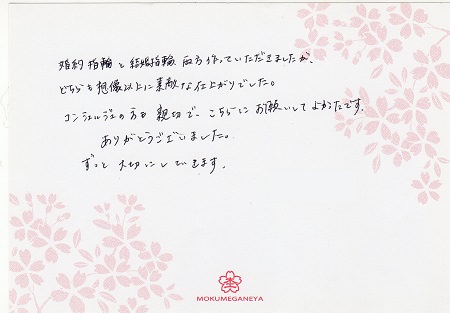 婚約指輪と結婚指輪両方作っていただきましたが、
どちらも想像以上に素敵な仕上がりでした。
コンシェルジュの方も親切で、こちらにお願いしてよかったです。
ありがとうございました。
ずっと大切にしていきます。
MOKUMEGANEYA